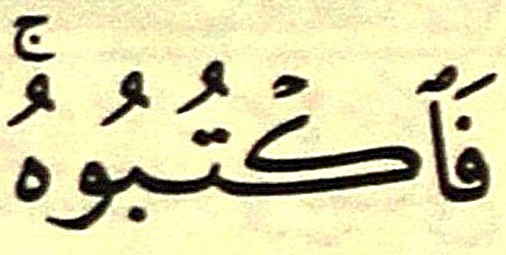 فَٱكْتُبُوهُ ۚ